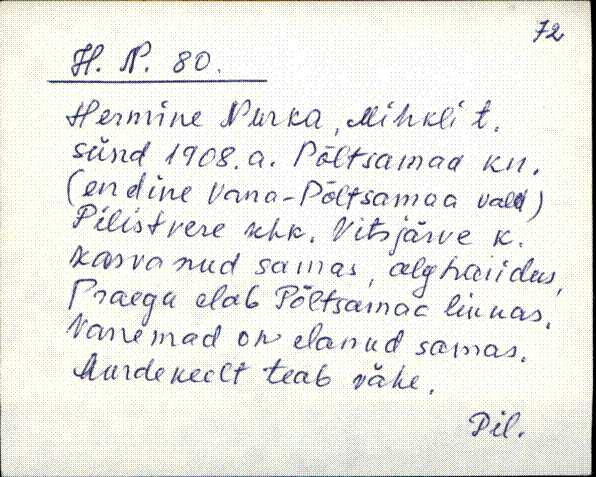 72
H. N. 80.
Hermine Nurka, Mihkli t.
sünd 1908. a. Põltsamaa kn.
(endine Vana-Põltsamaa vald)
Pilistvere khk. Vitsjärve k.
Kasvanud samas, algharidus,
Praegu elab Põltsamaa linnas.
Vanemad on elanud samas.
Murdekeelt teab vähe.
Pil.